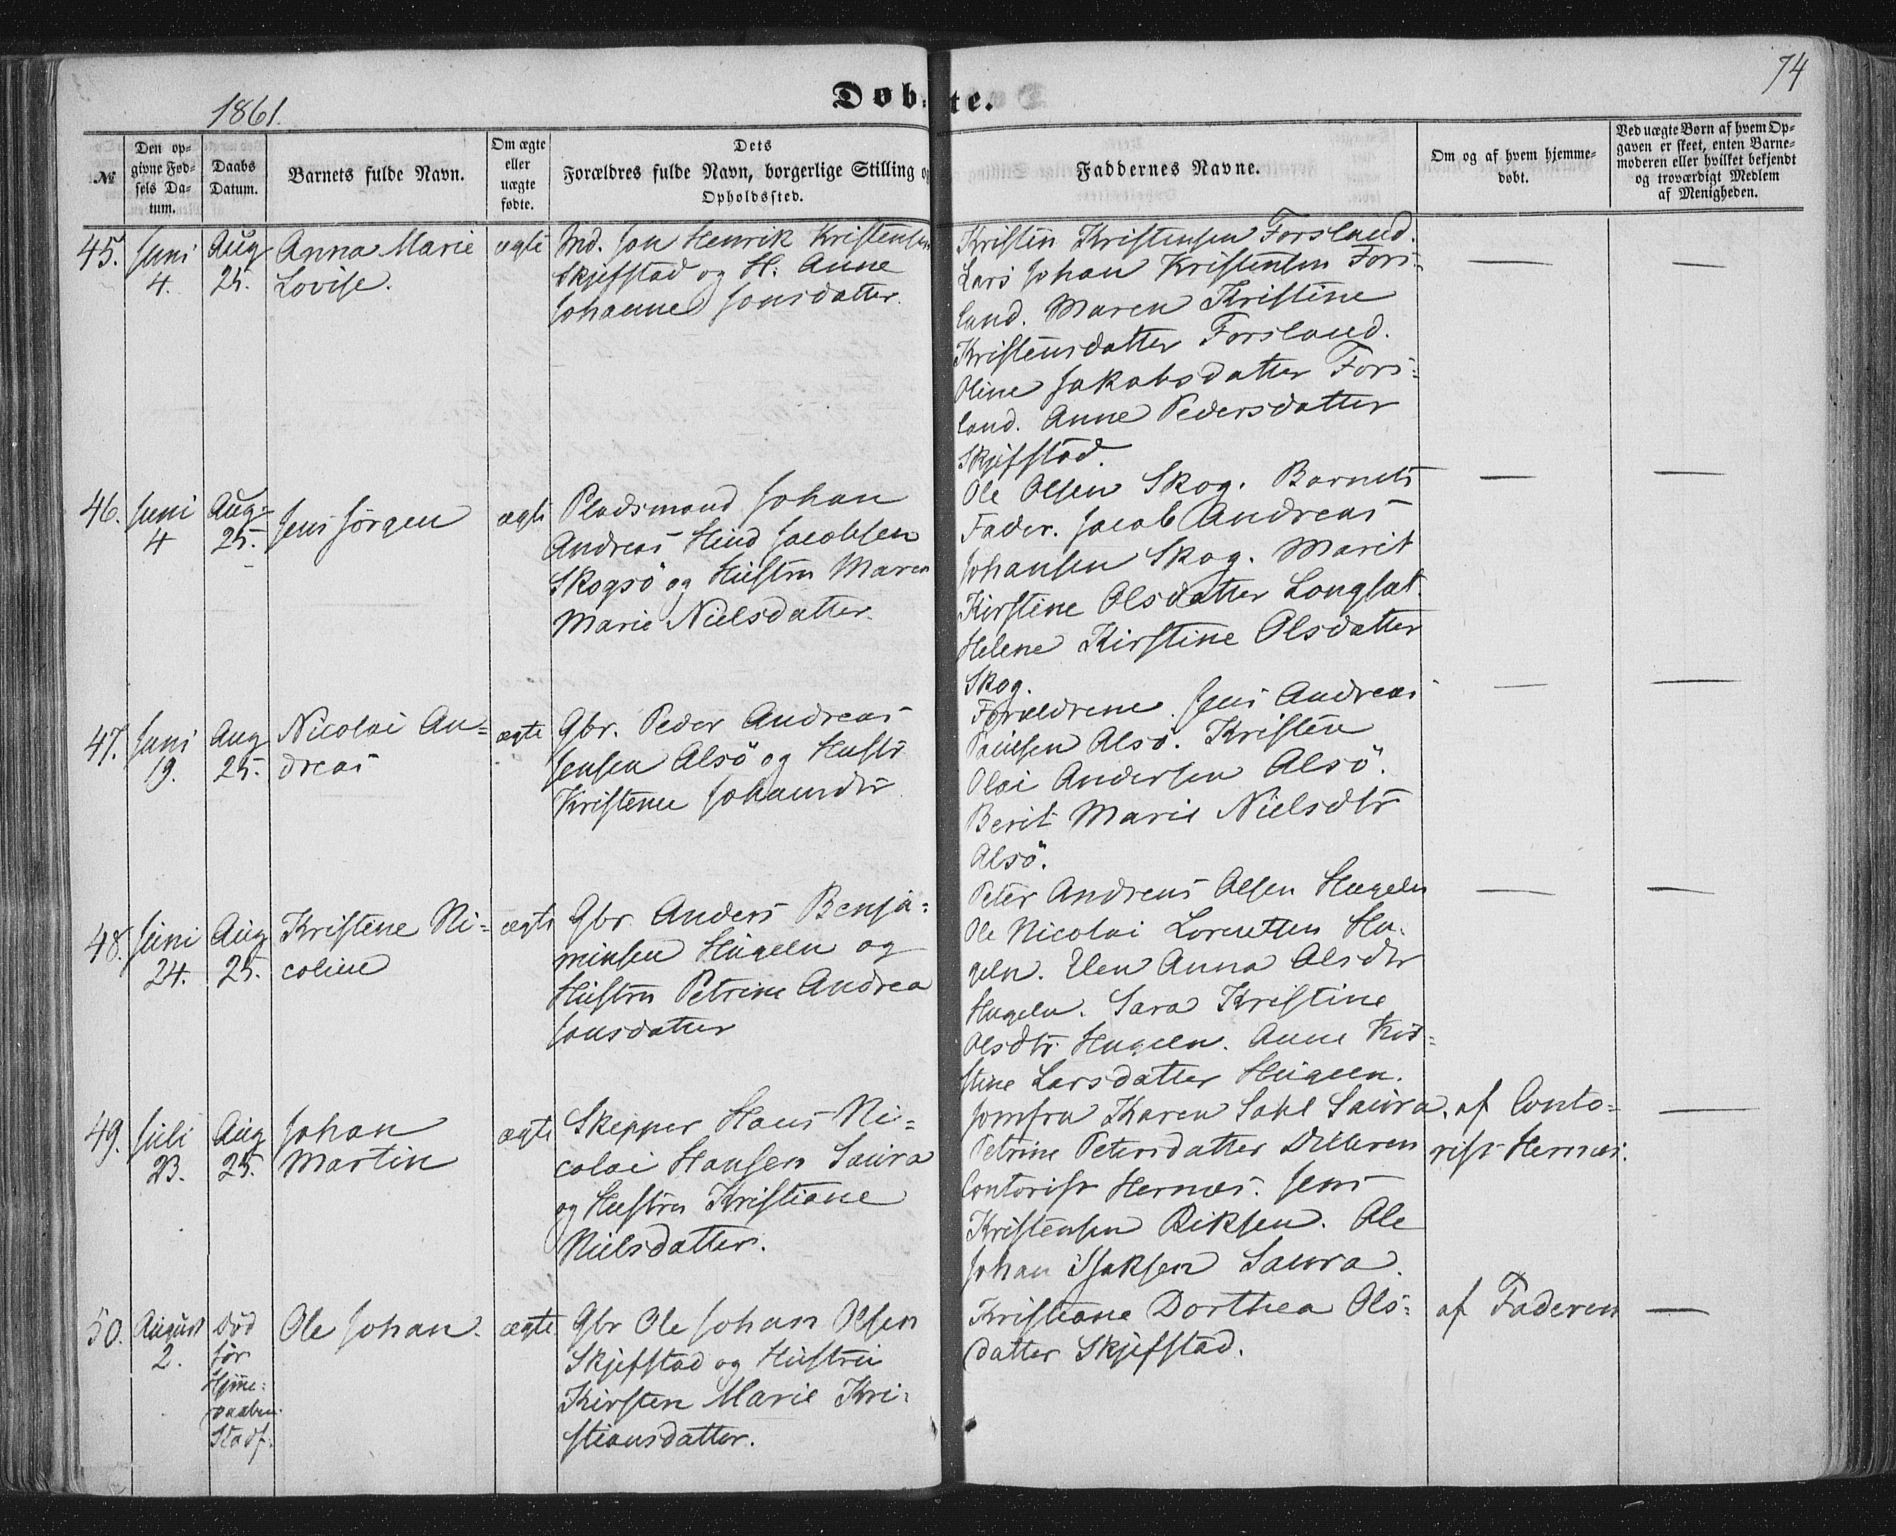 74
1861.
Døbte.
№
Den op-
givne Fød-
sels Da-
tum.
Daabs
Datum.
Barnets fulde Navn.
Om ægte
eller
uægte
fødte.
Dets
Forældres fulde Navn, borgerlige Stilling og
Opholdssted.
Faddernes Navne.
Om og af hvem hjemme-
døbt.
Ved uægte Børn af hvem Op-
gaven er skeet, enten Barne-
moderen eller hvilket bekjendt
og troværdigt Medlem
af Menigheden.
45.
Juni
4.
Aug
25.
Anna Marie
Lovise.
ægte
Md. Jon Henrik Kristensen
Skjefstad og H: Anne
Johanne Jonsdatter.
Kristen Kristensen Forsland.
Lars Johan Kristensen Fors-
land. Maren Kristine
Kristensdatter Forsland.
Oline Jakobsdatter Fors-
land. Anne Pedersdatter
Skjefstad.
—
—
46.
Juni
4
Aug-
25.
Jens Jørgen
ægte
Pladsmand Johan
Andreas Hind Jacobsen
Skogsö og Hustru Maren
Marie Nielsdatter.
Ole Olsen Skog. Barnets
Fader. Jacob Andreas
Johansen Skog. Marit
Kirstine Olsdatter Longsat.
Helene Kirstine Olsdatter
Skog.
—
—
47.
Juni
19.
Aug
25.
Nicolai An-
dreas
ægte
Gbr. Peder Andreas
Jensen Alsö og Hustr
Kristene Johansdtr
Forældrene. Jens Andreas
Paulsen Alsö. Kristen
Olai Andersen Alsö.
Berit Marie Nielsdtr
Alsö.
—
—
48.
Juni
24.
Aug
25.
Kristene Ni-
coline
ægte
Gbr. Anders Benja-
minsen Hugeln og
Hustru Petrine Andrea
Jonsdatter
Peter Andreas Olsen Hugeln
Ole Nicolai Lorentsen Hu-
geln. Elen Anna Olsdtr
Hugeln. Sara Kristine
Olsdtr. Hugeln. Anne Kir-
stine Larsdatter Hugeln.
—
—
49.
Juli
23.
Aug
25.
Johan
Martin
ægte
Skipper Hans Ni-
colai Hansen Saura
og Hustru Kristiane
Nielsdatter.
Jomfru Karen Dahl Saura.
Petrine Petersdatter Dilkeren
Contorist Hernes. Jens
Kristensen Riksen. Ole
Johan Isaksen Saura.
af Conto-
rist Hernes.
—
50.
August
2.
Död
før
Hjme-
daaben
Stadf.
Ole Johan.
ægte
Gbr Ole Johan Olsen
Skjefstad og Hustru
Kirsten Marie Kri-
stiansdatter.
Kristiane Dorthea Ols-
datter Skjefstad.
af Faderen
—